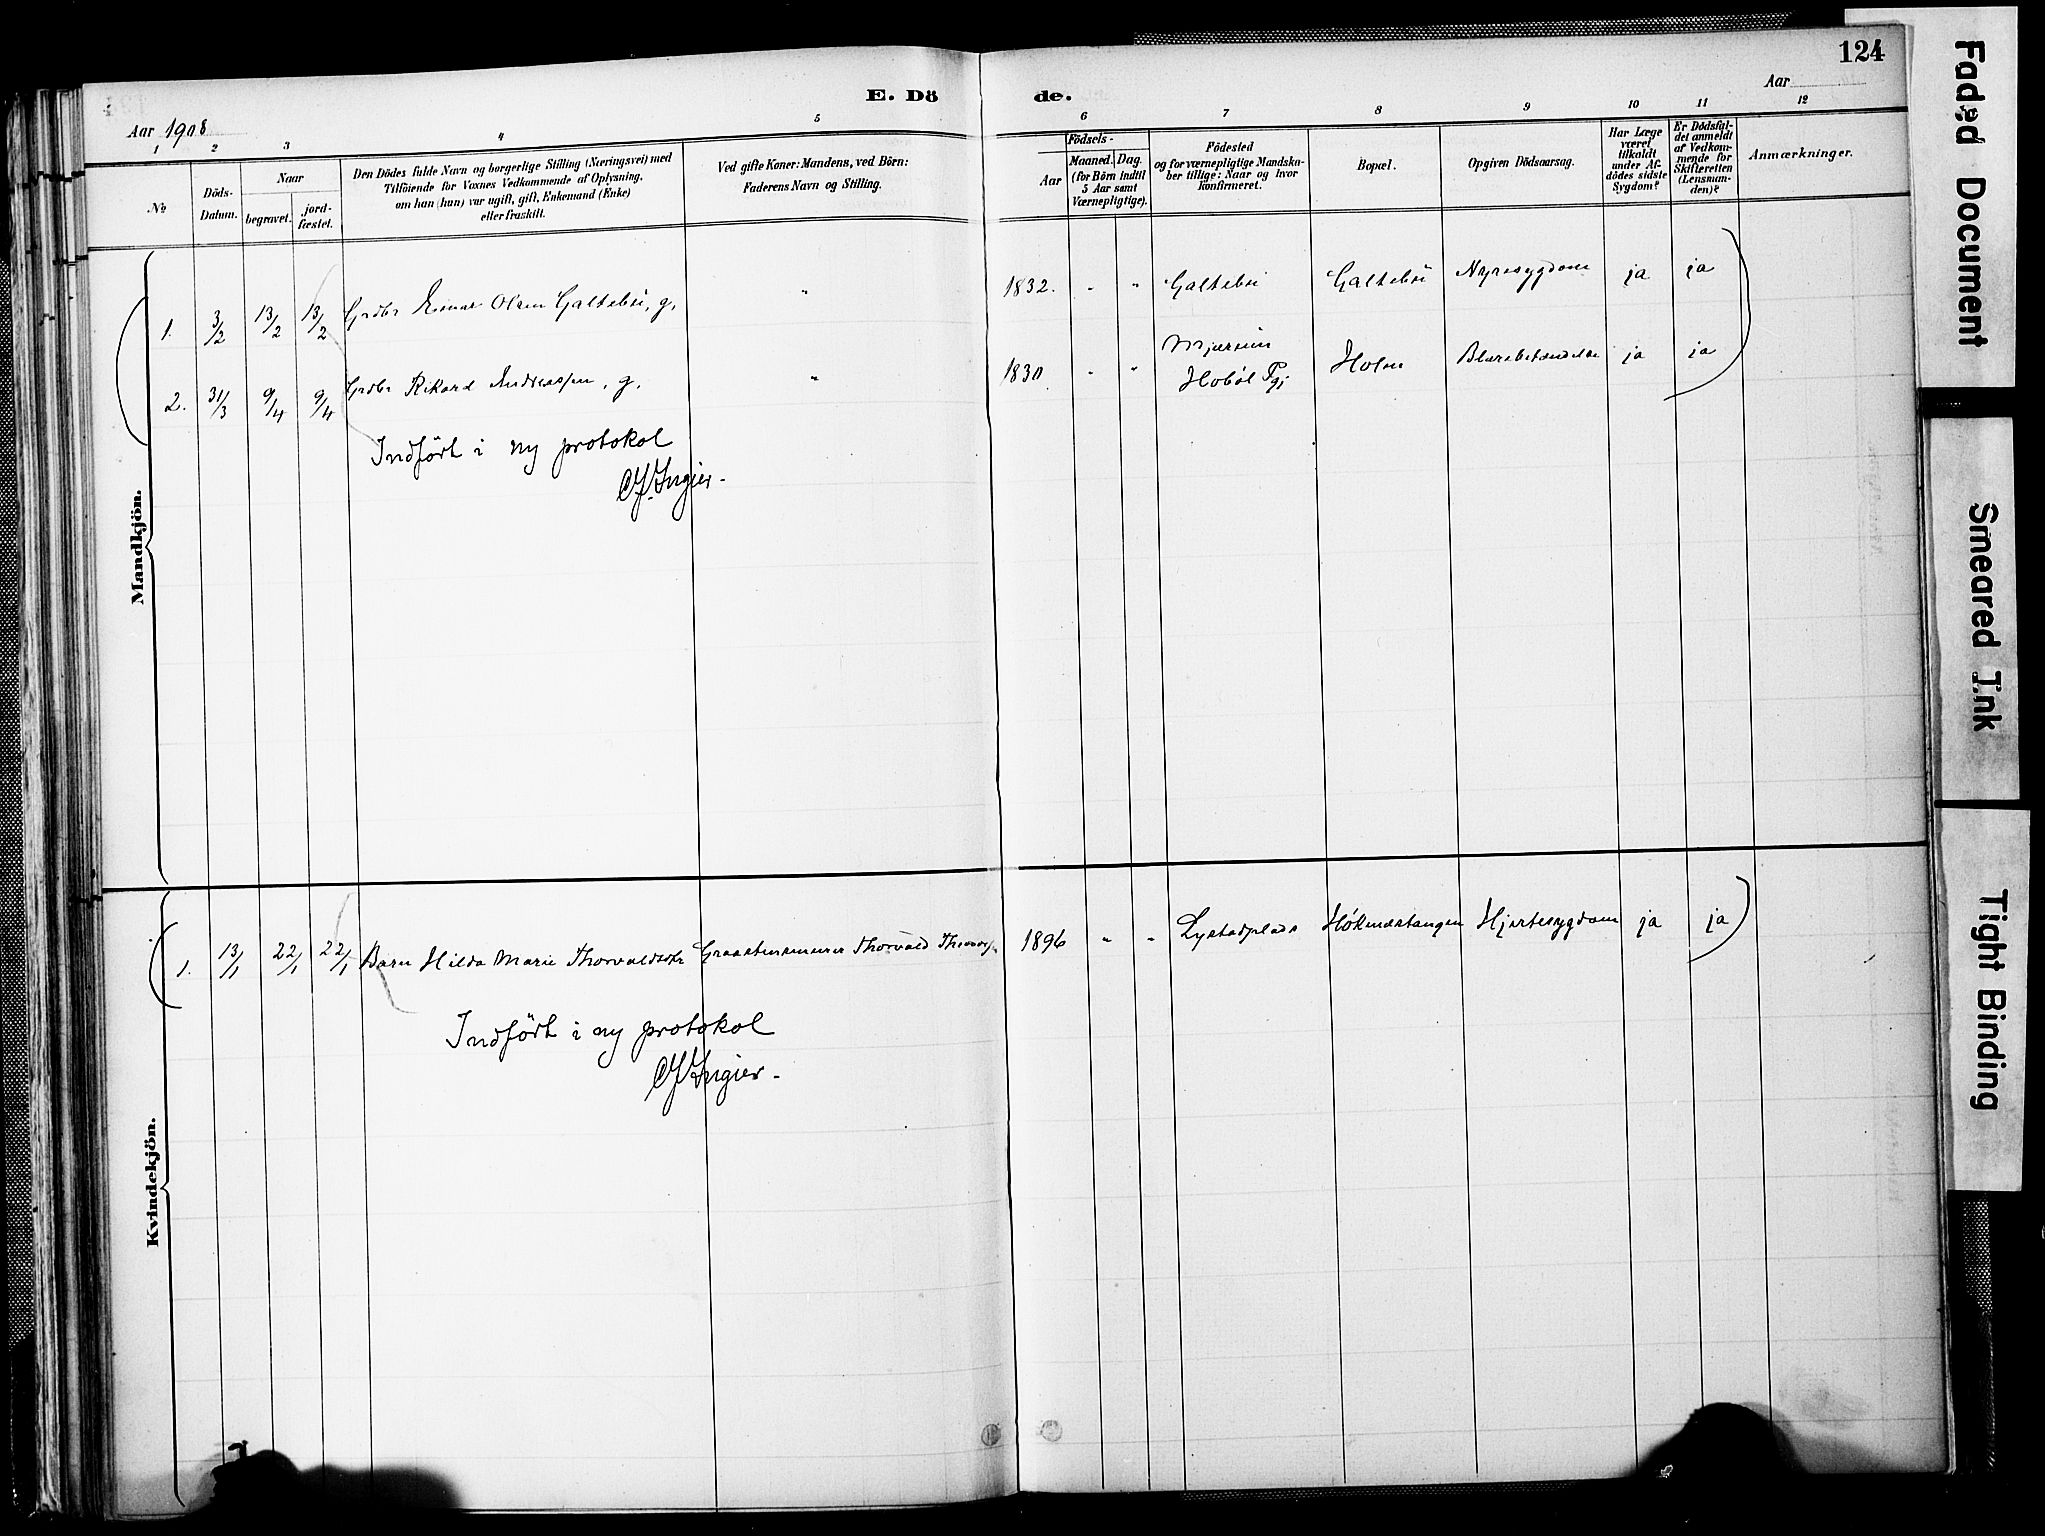 124
E. Döde.
Aar 1908
Aar
1 2 3 4 5 6 7 8 9 10 11 12
No
Döds-Datum.
Naar
begravet.
jord-fæstet.
Den Dödes fulde Navn og borgerlige Stilling (Næringsvei) med
Tilföiende for Voxnes Vedkommende af Oplysning,
om han (hun) var ugift, gift, Enkemand (Enke)
eller fraskilt.
Ved gifte Koner: Mandens, ved Börn:
Faderens Navn og Stilling.
Födsels-
Aar
Maaned. Dag.
(for Börn indtil
5 Aar samt
Værnepligtige).
Födested
og for værnepligtige Mandska-
ber tillige: Naar og hvor
konfirmeret.
Bopæl.
Opgiven Dödsaarsag.
Har Læge
været
tilkaldt
under Af-
dödes sidste
Sygdom?
Er Dödsfal-
det anmeldt
af Vedkom-
mende for
Skifteretten
(Lensman-
den)?
Anmærkninger.
Mandkjön.
1. 3/2 13/2 13/2 Grdbr Einar Olsen Galtebøi, g. " 1832. " " Galtebøi Galtebøi Nyresygdom ja ja
2. 31/3 9/4 9/4 Grdbr Rikard Andreassen, g. " 1830 " " Mjærum Hobøl Pgj Holm Blærebetændelse ja ja
Indført i ny protokol
Ingier.
Kvindekjön.
1. 13/1 22/1 22/1 Barn Hilda Marie Thorvaldsdtr Graastensminerer Thorvald 1896 " " Lystadplads Høkenæstangen Hjertesygdom ja ja
Indført i ny protokol
Ingier.
Faded Document
Smeared Ink
Tight Binding